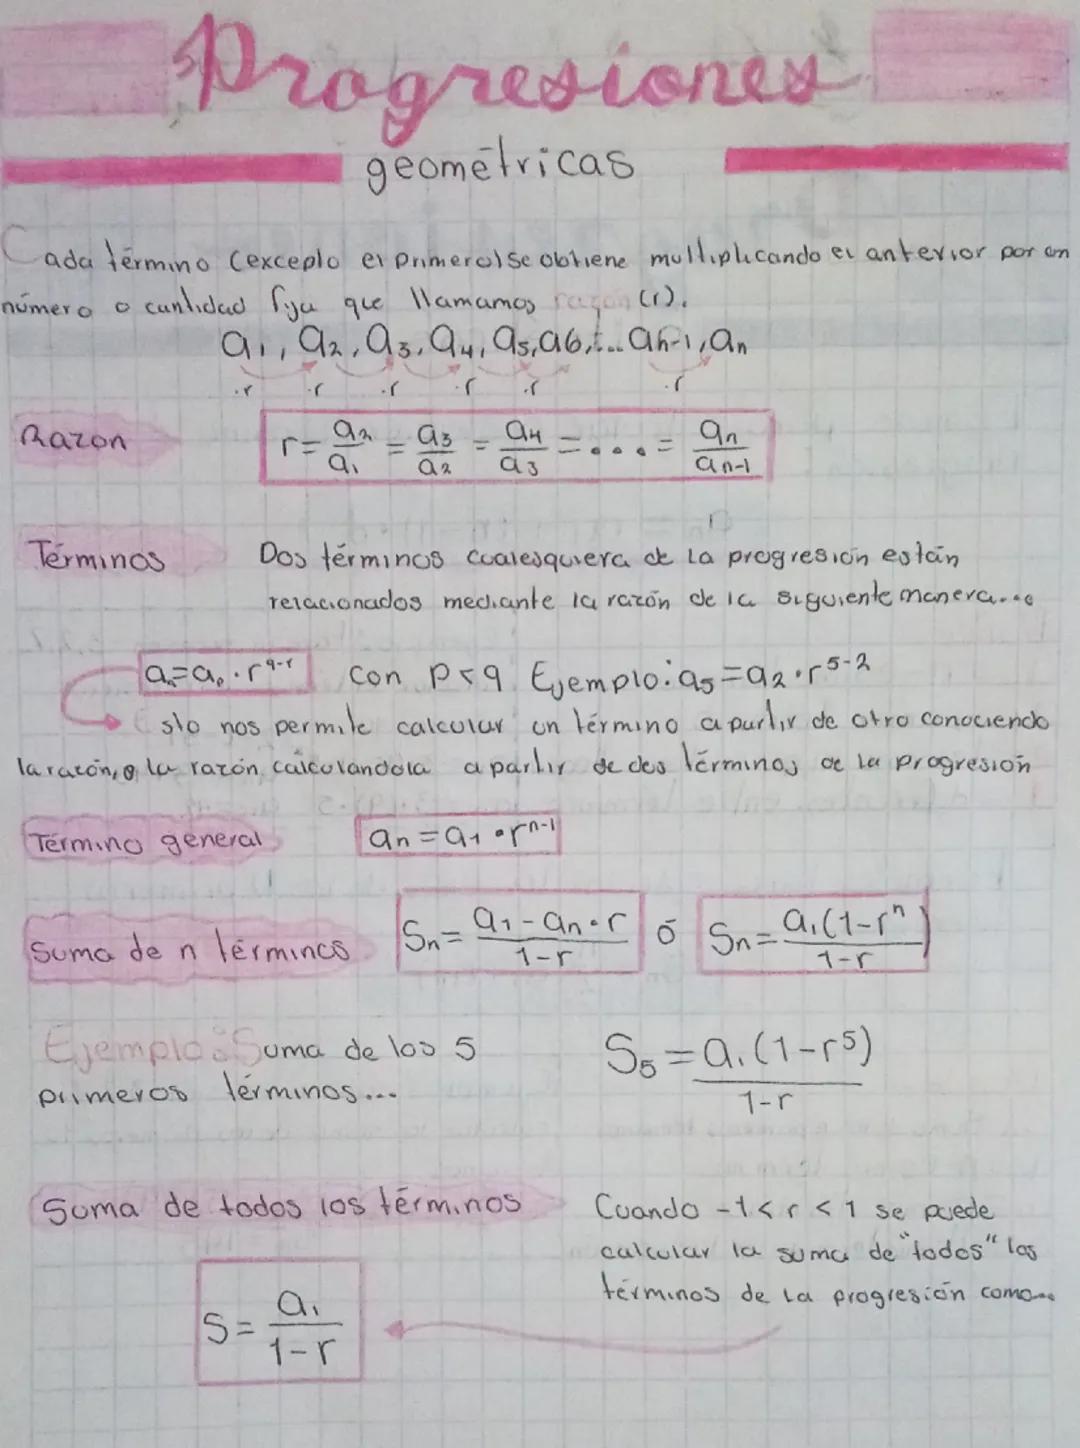 Progresiones
geométricas
Cada término (excepto el primero) se obtiene multiplicando el anterior por un
número o cantidad fija que llamamos razón (r).
a₁, a₂, a₃, a₄, a₅, a6, ... an-1, an
·r ·r ·r ·r ·r ·r
Razon r = a₂/a₁ = a₃/a₂ = a₄/a₃ = .... = an/an-1
Términos Dos términos cualesquiera de la progresión están
relacionados mediante la razón de la siguiente manera...
con p<q Ejemplo: a₅ = a₂ · r⁵⁻²
Esto nos permite calcular un término a partir de otro conociendo
la razón, o la razón calculandola a partir de dos términos de la progresión
Término general an = a₁ · rⁿ⁻¹
Suma de n términos Sn = a₁ - an · r / 1-r ó Sn = a₁(1-rⁿ) / 1-r
Ejemplo: Suma de los 5 S₅ = a₁(1-r⁵) / 1-r
primeros términos...
Suma de todos los términos Cuando -1 < r < 1 se puede
calcular la suma de "todos" los
términos de la progresión como...
S = a₁ / 1-r